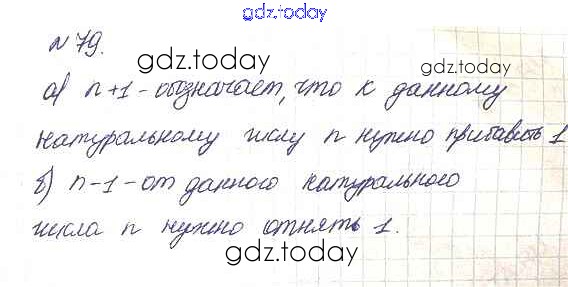 gdz.today
N 79.
gdz.today
gdz.today
а) n+1 - обозначает, что к данному
натуральному числу n нужно прибавить 1
б) n-1 - от данного натурального
числа n нужно отнять 1.
gdz.today